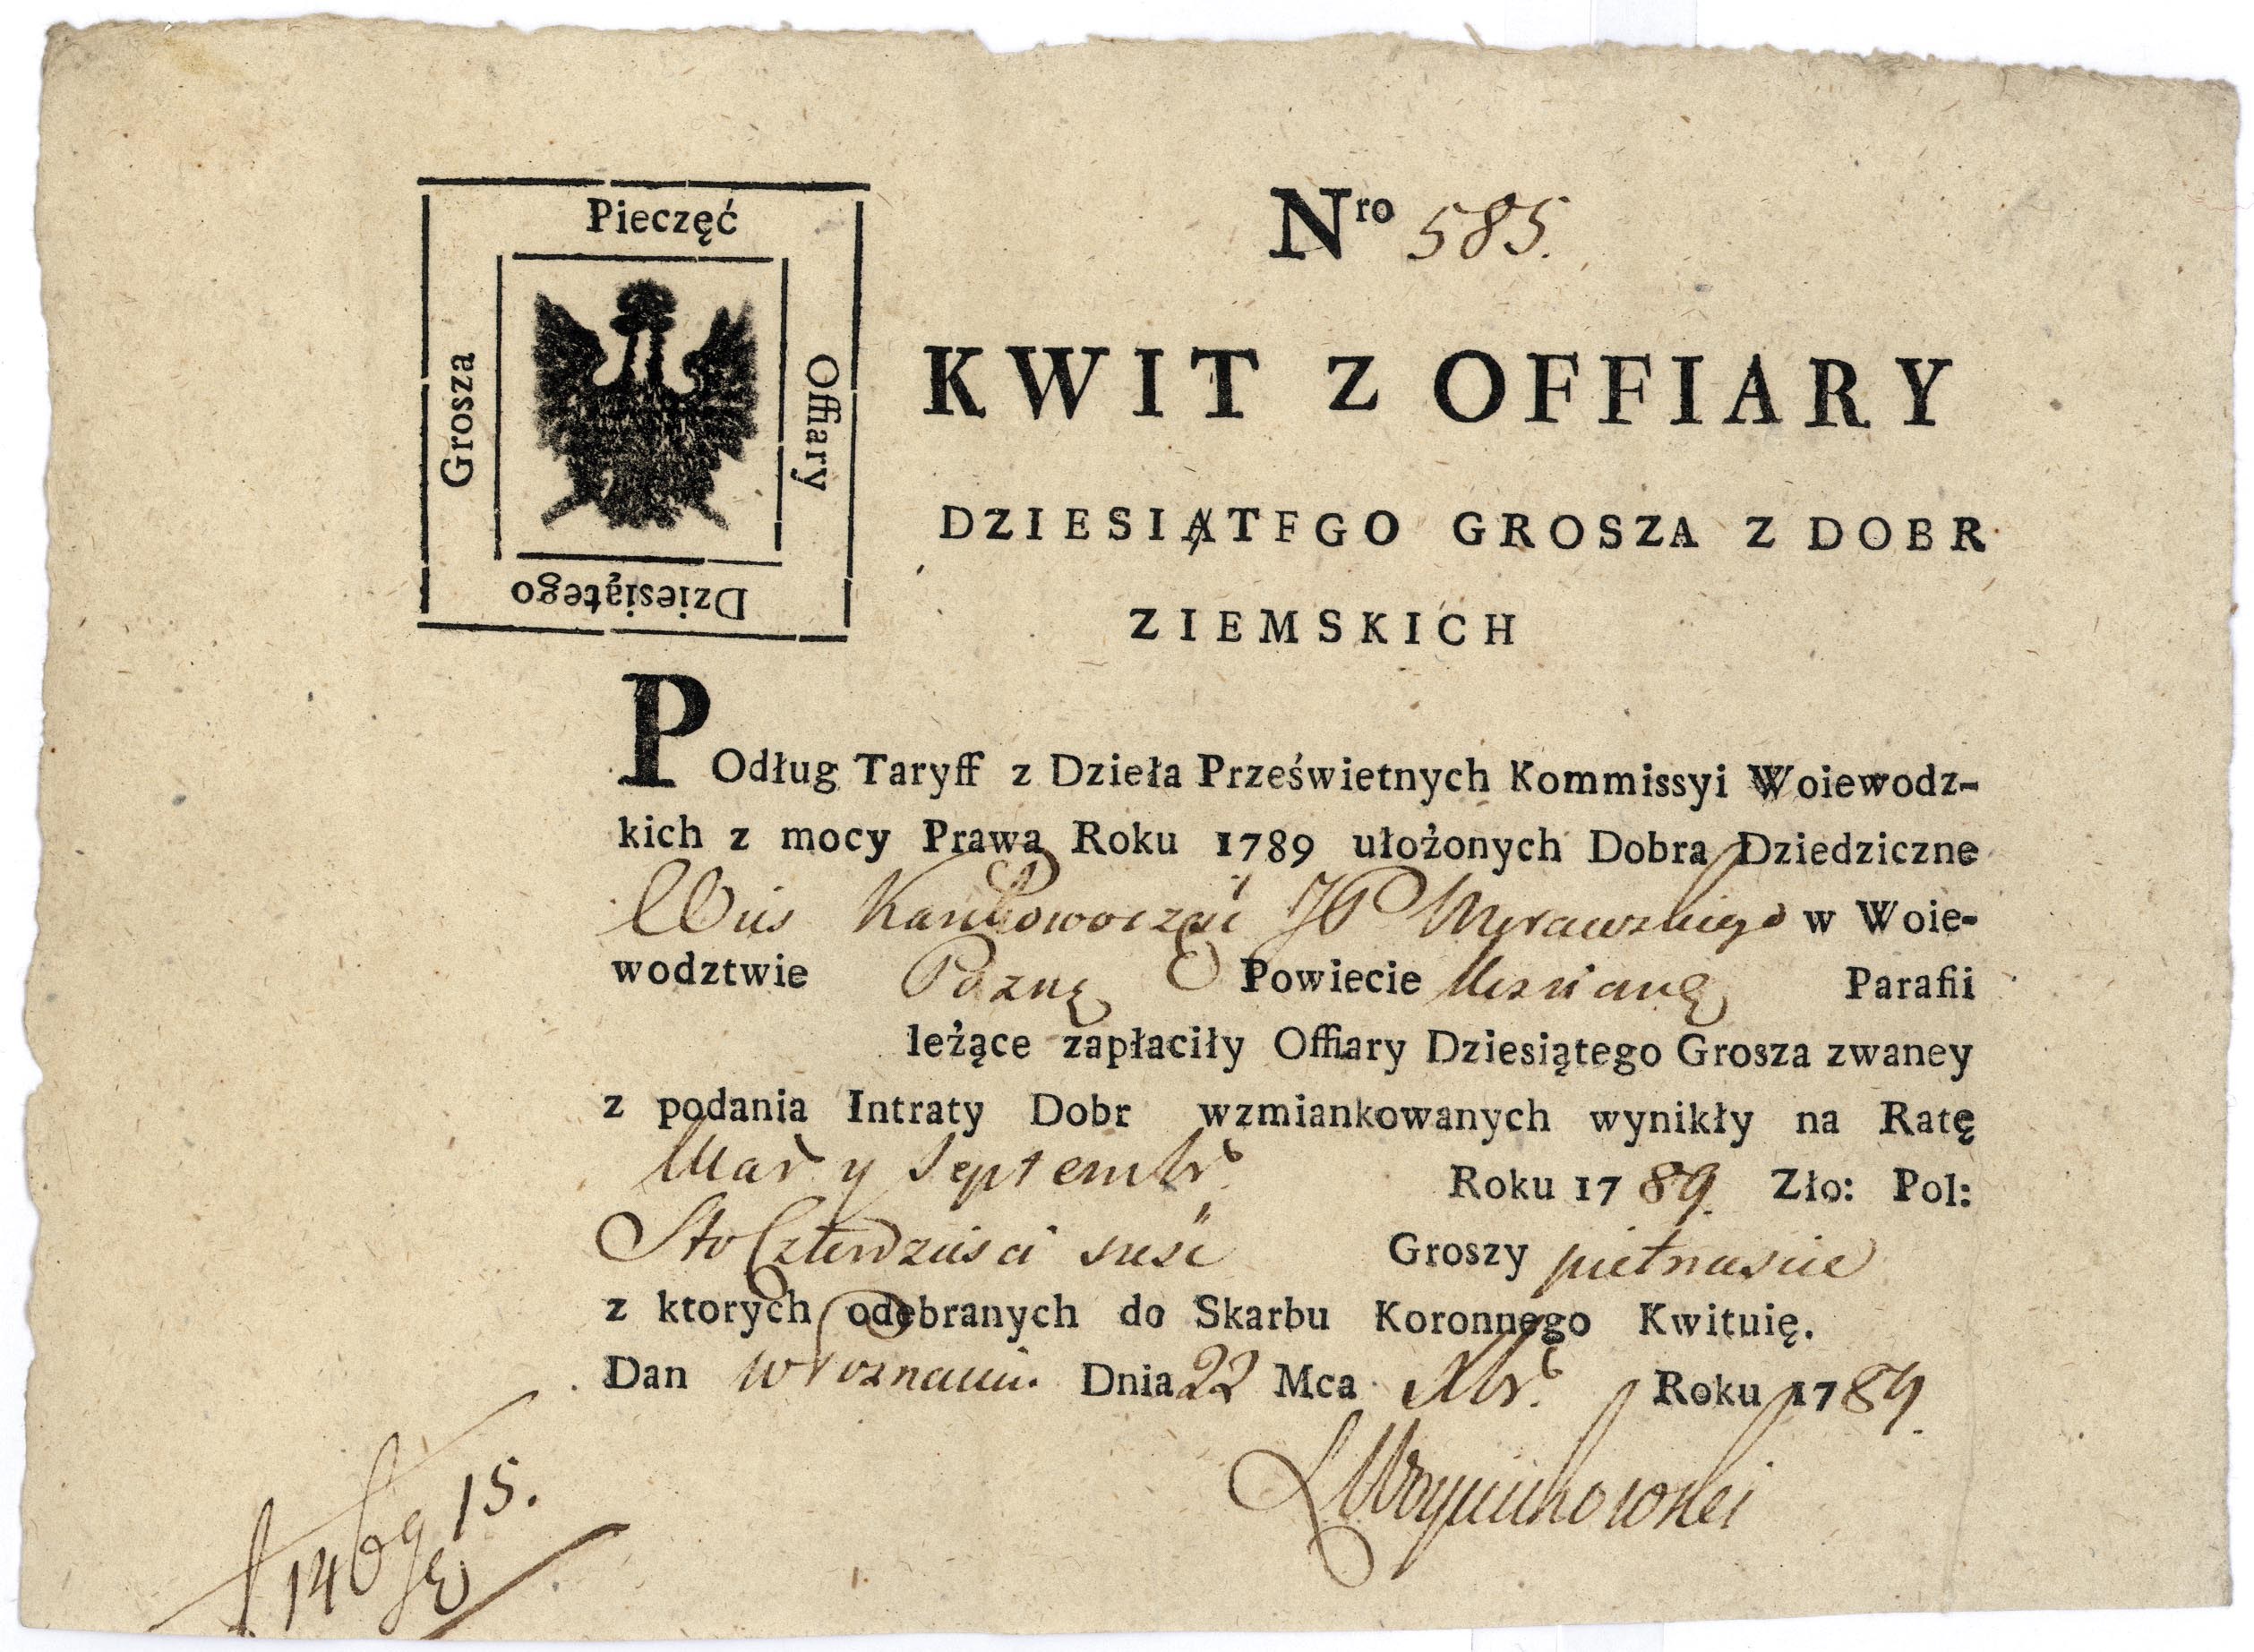 Pieczęć
Offiary
Dziesiątego
Grosza
Nro 585.
KWIT Z OFFIARY
DZIESIĄTEGO GROSZA Z DOBR
ZIEMSKICH
POdług Taryff z Dzieła Prześwietnych Kommissyi Woiewodz-
kich z mocy Prawa Roku 1789 ułożonych Dobra Dziedziczne
Wies JP w Woie-
wodztwie Pozng Powiecie Parafii
leżące zapłaciły Offiary Dziesiątego Grosza zwaney
z podania Intraty Dobr wzmiankowanych wynikły na Ratę
Mar y Septembr. Roku 1789. Zło: Pol:
Sto Czterdziesci szesć Groszy pietnascie
z ktorych odebranych do Skarbu Koronnego Kwituię.
Dan w Poznaniu. Dnia 22 Mca Xbr. Roku 1789.
f 146 g 15.